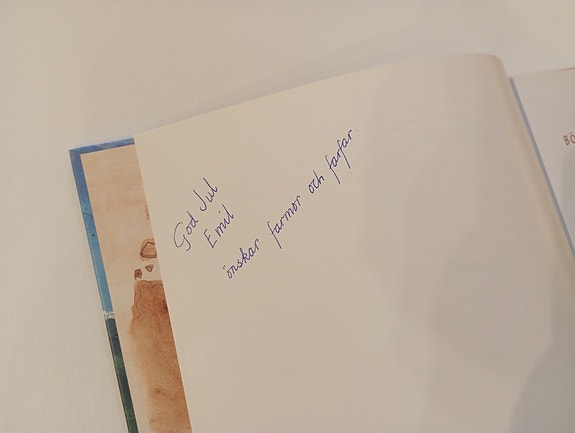 God Jul
Emil
önskar farmor och farfar.
BÖ